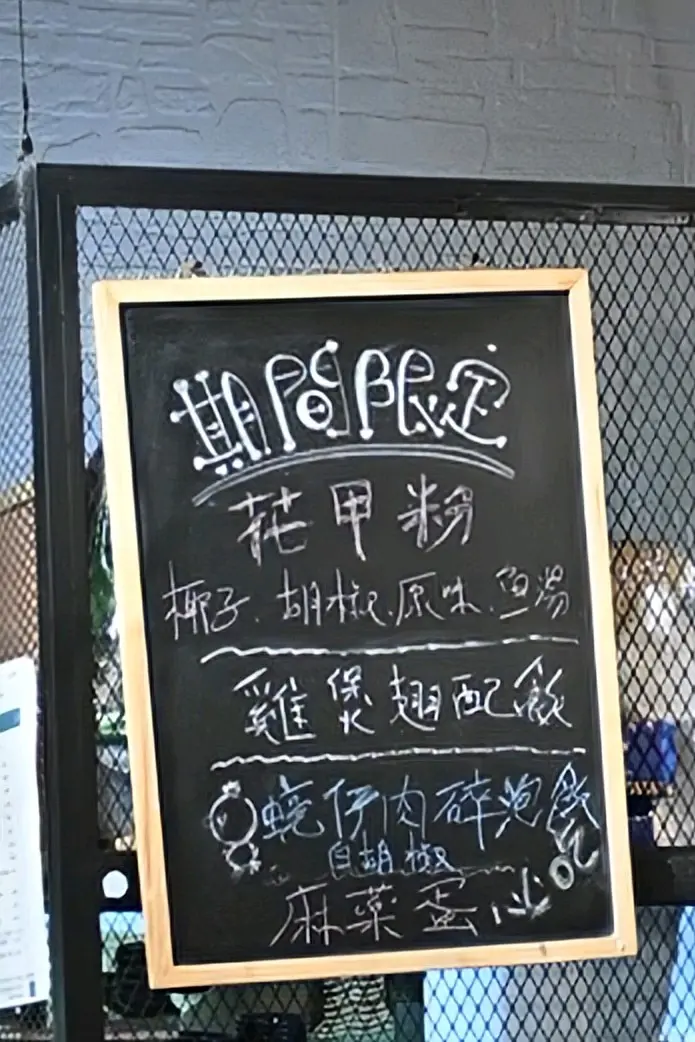 期間限定
花甲粉
椰子.胡椒.原味.魚湯
雞煲翅配飯
蜆伊肉碎泡飯
白胡椒
麻藥蛋